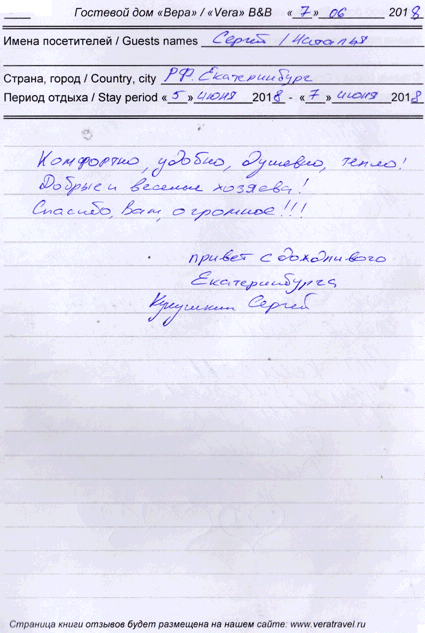 Гостевой дом «Вера» / «Vera» B&B « 7 » 06 2018
Имена посетителей / Guests names Сергей / Наталья
Страна, город / Country, city РФ. Екатеринбург
Период отдыха / Stay period « 5 » июня 2018 - « 7 » июня 2018
Комфортно, удобно, душевно, тепло!
Добрые и веселые хозяева!
Спасибо, Вам, огромное!!!
привет с дождливого
Екатеринбурга
Сергей
Страница книги отзывов будет размещена на нашем сайте: www.veratravel.ru